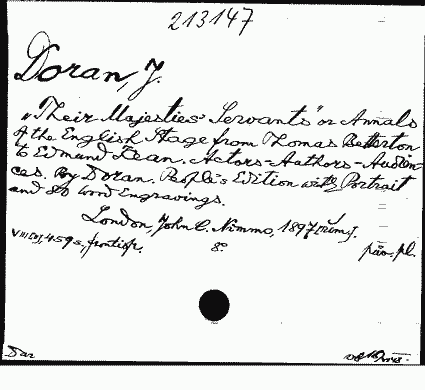 213147
Doran, J.
„Their Majesties' Servants" or Annals
of the English Stage from Thomas Betterton
to Edmund Kean. Actors - Authors - Audien-
ces. By Doran. People's Edition with Portrait
and 80 wood Engravings.
London, John C. Nimmo, 1897
VIII, 459 s., frontisp. 8°
pl.